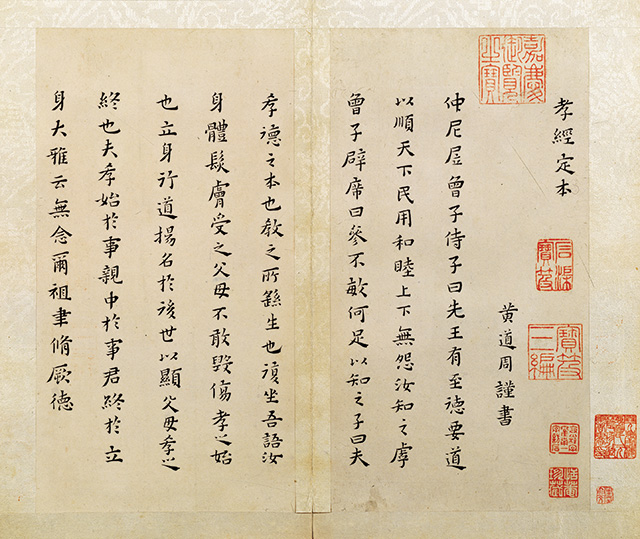 嘉慶御覽之寶
孝經定本
石渠寶笈
寶笈三編
黃道周謹書
仲尼凥曾子侍子曰先王有至德要道
以順天下民用和睦上下無怨汝知之虖
曾子辟席曰參不敏何足以知之子曰夫
孝德之本也教之所繇生也復坐吾語汝
身體髮膚受之父母不敢毀傷孝之始
也立身行道揚名於後世以顯父母孝之
終也夫孝始於事親中於事君終於立
身大雅云無念爾祖聿脩厥德